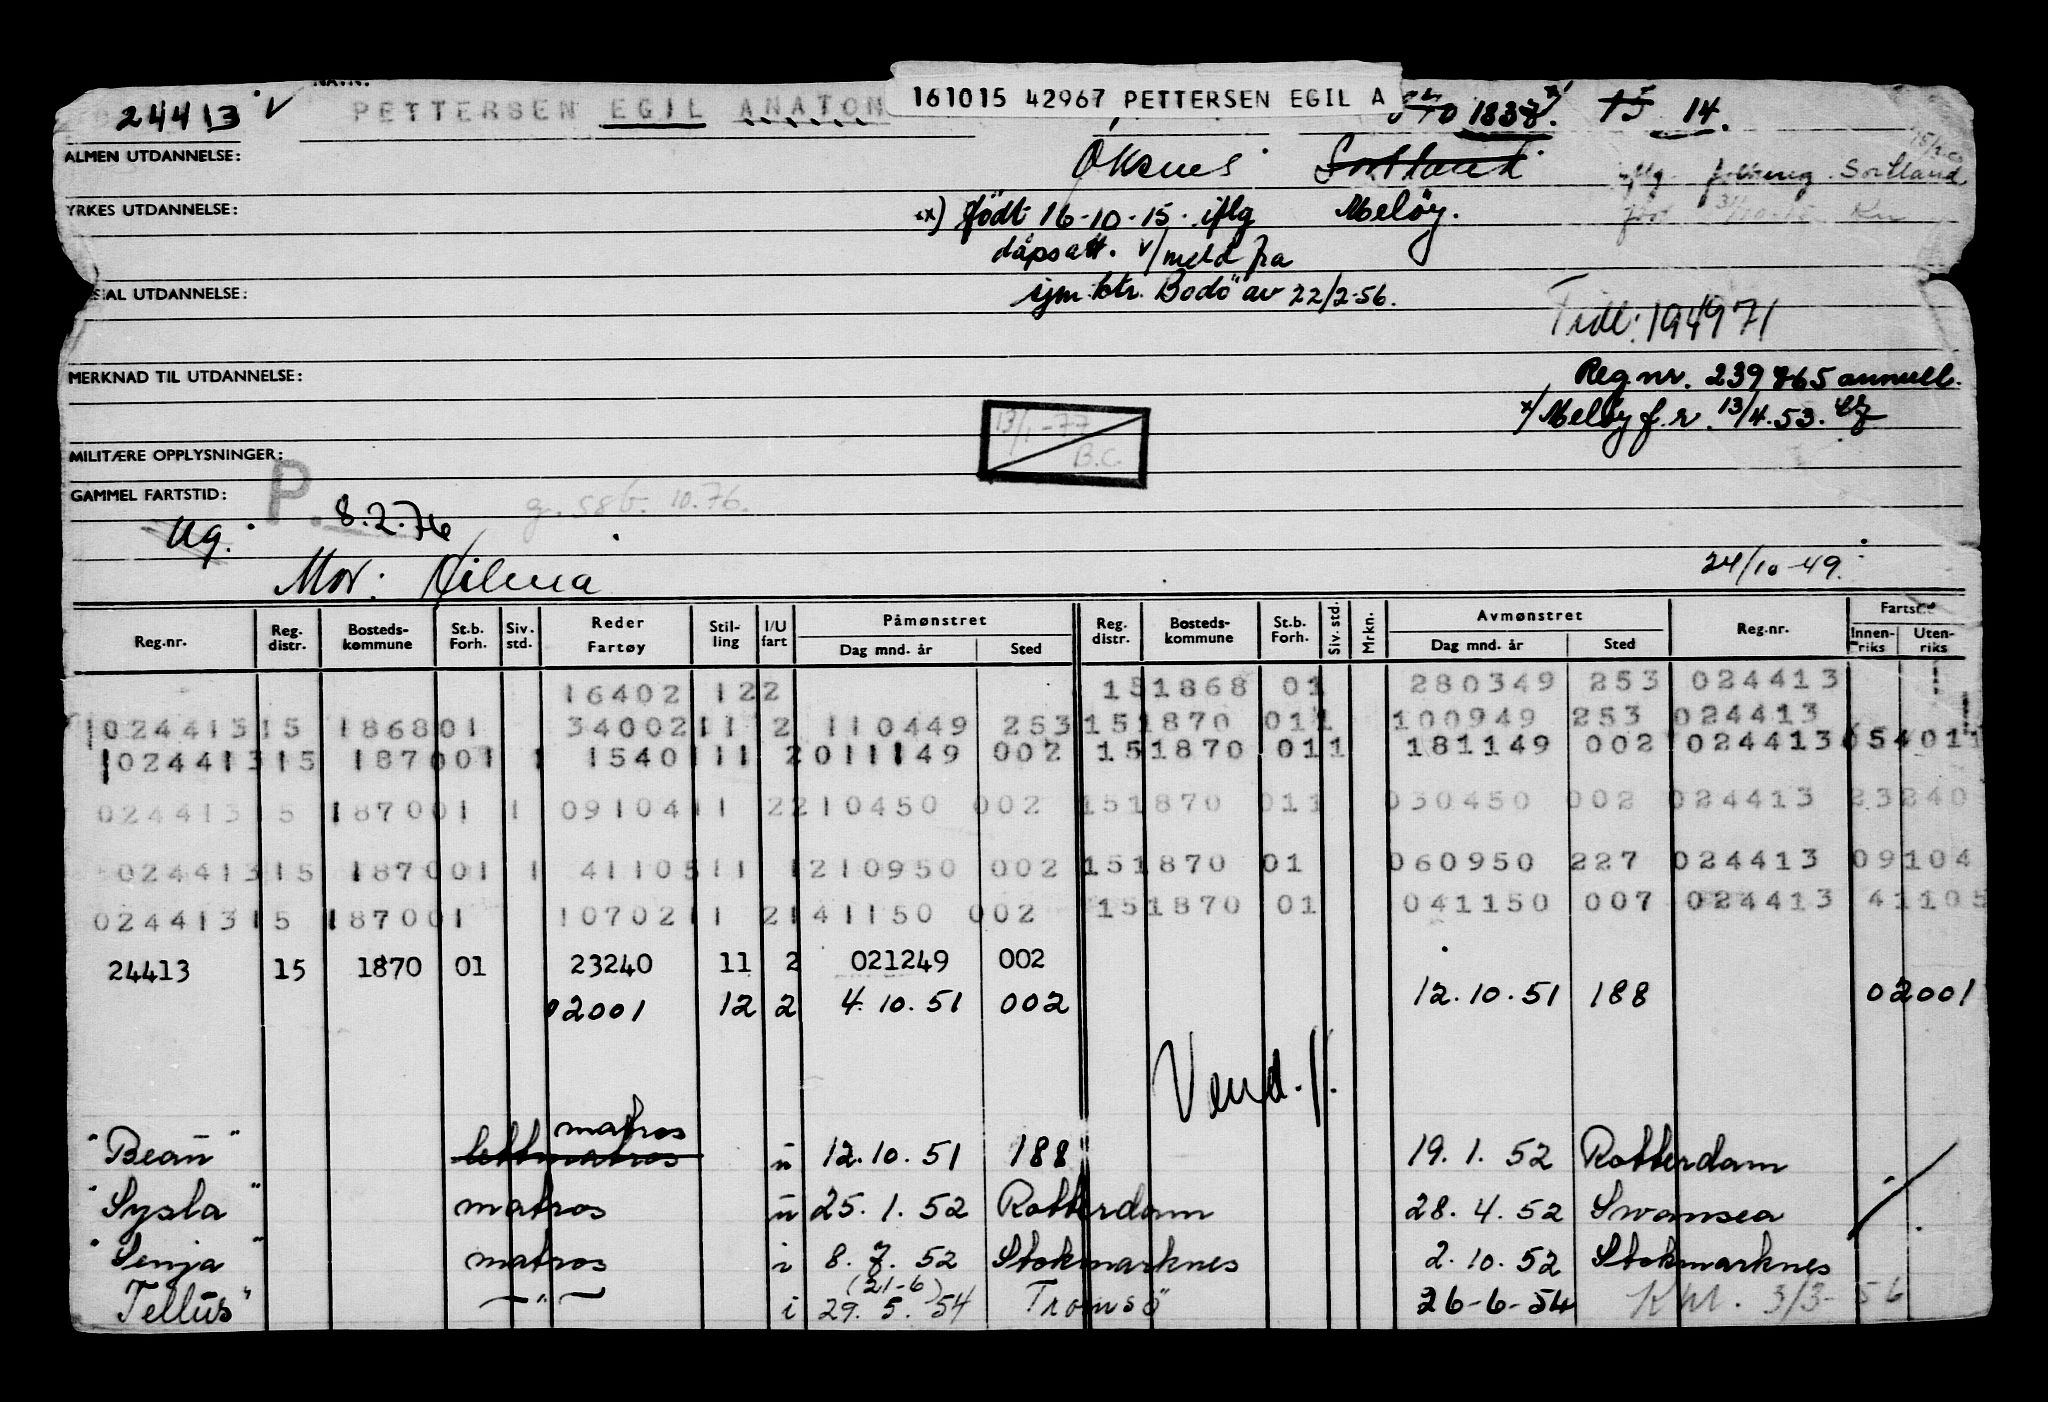 24413 v
PETTERSEN EGIL ANATON
161015 42967 PETTERSEN EGIL A
1837. 15 14.
ALMEN UTDANNELSE:
Öksnes Sortland
iflg. folkereg. Sortland
YRKES UTDANNELSE:
x) født 16-10-15. iflg Meløy.
dåpsatt. v/meld fra
sjm.ktr. Bodö av 22/2-56.
SIAL UTDANNELSE:
Tidl: 194971
MERKNAD TIL UTDANNELSE:
Reg nr. 239865 annull.
x/ Meløy f.r. 13/4.53.
13/1-77
B.C.
MILITÆRE OPPLYSNINGER:
GAMMEL FARTSTID:
P.
Ug. 8.2.76 10.76.
Mor: Vilma
24/10-49.
Reg.nr. Reg. distr. Bosteds-kommune St.b. Forh. Siv. std. Reder Fartøy Stil-ling I/U fart Påmønstret Dag mnd. år Sted Reg. distr. Bosteds-kommune St.b. Forh. Siv. std. Mrkn. Avmønstret Dag mnd. år Sted Reg.nr. Fartstid Innen-riks Uten-riks
16402 122 151868 01 280349 253 024413
024413 15 1868 01 34002 11 2 110449 253 151870 01 1 100949 253 024413
024413 15 1870 01 1 15401 11 2 011149 002 151870 01 1 181149 002 024413 054011
024413 15 1870 01 1 09104 11 2 210450 002 151870 01 1 030450 002 024413 23240
024413 15 1870 01 1 41105 11 1 210950 002 151870 01 060950 227 024413 09104
024413 15 1870 01 10702 11 2 141150 002 151870 01 041150 007 024413 41105
24413 15 1870 01 23240 11 2 021249 002
02001 12 2 4.10.51 002 12.10.51 188 02001
Vend.//.
matros
"Beau" lettmatros u 12.10.51 188 19.1.52 Rotterdam
"Sysla" matros u 25.1.52 Rotterdam 28.4.52 Swansea
"Senja" matros i 8.7.52 Stokmarknes 2.10.52 Stokmarknes
(21-6)
Tellus" —"— i 29.5.54 Tromsö 26-6-54 Kpl. 3/3-56